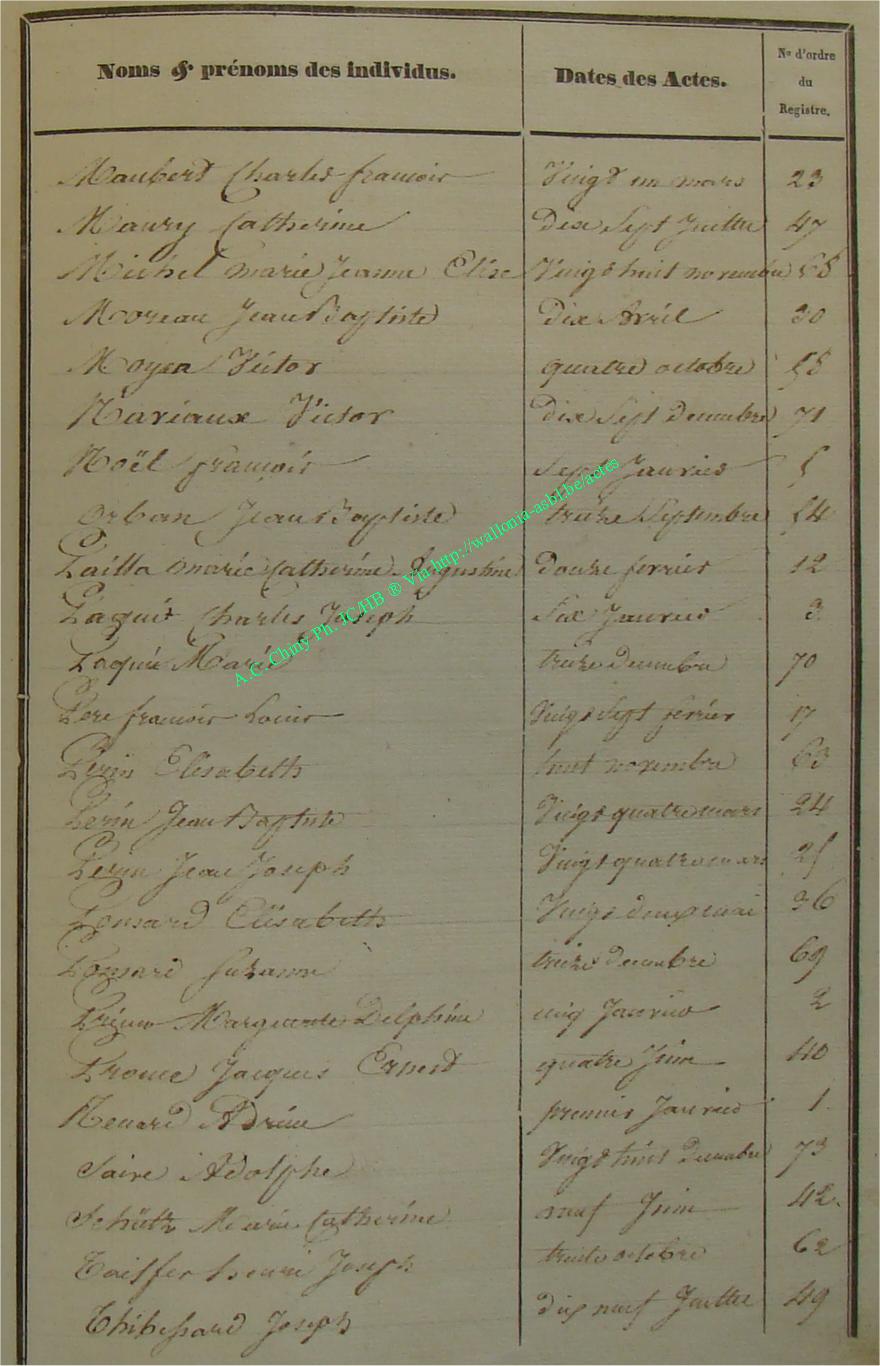 Noms & prénoms des individus. Dates des Actes. Nos d'ordre du Registre.
Maubert Charles francois Vingt un mars 23
Maury Catherine Dix Sept Juillet 47
Michel marie Jeanne Elise Vingt huit novembre 68
Moreau Jean Baptiste Dix Avril 30
Moyen Victor quatre octobre 58
Nariaux Victor dix Sept Decembre 71
Noël francois sept Janvier 5
Orban Jean Baptiste treize Septembre 54
Pailla marie Catherine Augustine douze fevrier 12
Paquit Charles Joseph Six Janvier 3
Paquis Marie treize decembre 70
Pere francois Louis Vingt Sept fevrier 17
Perin Elisabeth huit novembre 63
Perin Jean Baptiste Vingt quatre mars 24
Perin Jean Joseph Vingt quatre mars 25
Ponsard Elisabeth Vingt deux mai 36
Ponsard Suzanne treize decembre 69
Marguerite Delphine cinq Janvier 2
Jacques Ernest quatre Juin 40
Renard Adrien premier Janvier 1
Saire Adolphe Vingt huit Decembre 73
Schütz Marie Catherine neuf Juin 42
Taiffer henri Joseph trente octobre 62
Thibessard Joseph dix neuf Juillet 49
A.C. Chiny Ph. JC/HB ® Via http://wallonia-asbl.be/actes